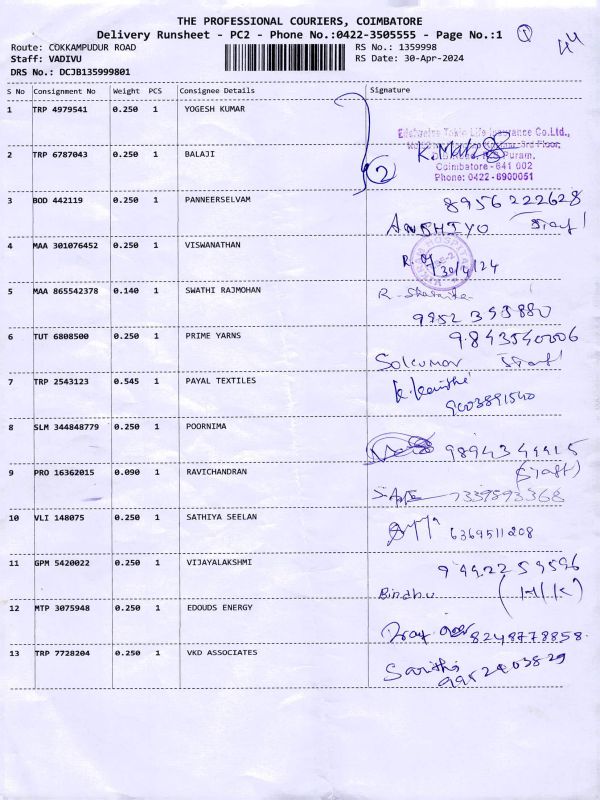 THE PROFESSIONAL COURIERS, COIMBATORE
Delivery Runsheet - PC2 - Phone No.:0422-3505555 - Page No.:1 1
Route: COKKAMPUDUR ROAD RS No.: 1359998
Staff: VADIVU RS Date: 30-Apr-2024
DRS No.: DCJB135999801
S No Consignment No Weight PCS Consignee Details Signature
1 TRP 4979541 0.250 1 YOGESH KUMAR
Edelweiss Tokio Life Insurance Co.Ltd.,
3rd Floor,
2 TRP 6787043 0.250 1 BALAJI
Puram,
Coimbatore - 641 002
Phone: 0422-6900051
2
3 BOD 442119 0.250 1 PANNEERSELVAM 8956222628
4 MAA 301076452 0.250 1 VISWANATHAN
30/4/24
5 MAA 865542378 0.140 1 SWATHI RAJMOHAN
9952393880
6 TUT 6808500 0.250 1 PRIME YARNS 9843540006
7 TRP 2543123 0.545 1 PAYAL TEXTILES
9003891540
8 SLM 344848779 0.250 1 POORNIMA
(Staff)
9 PRO 16362015 0.090 1 RAVICHANDRAN
10 VLI 148075 0.250 1 SATHIYA SEELAN 6369511208
11 GPM 5420022 0.250 1 VIJAYALAKSHMI
Bindhu (H/K)
12 MTP 3075948 0.250 1 EDOUDS ENERGY
8248778858
13 TRP 7728204 0.250 1 VKD ASSOCIATES